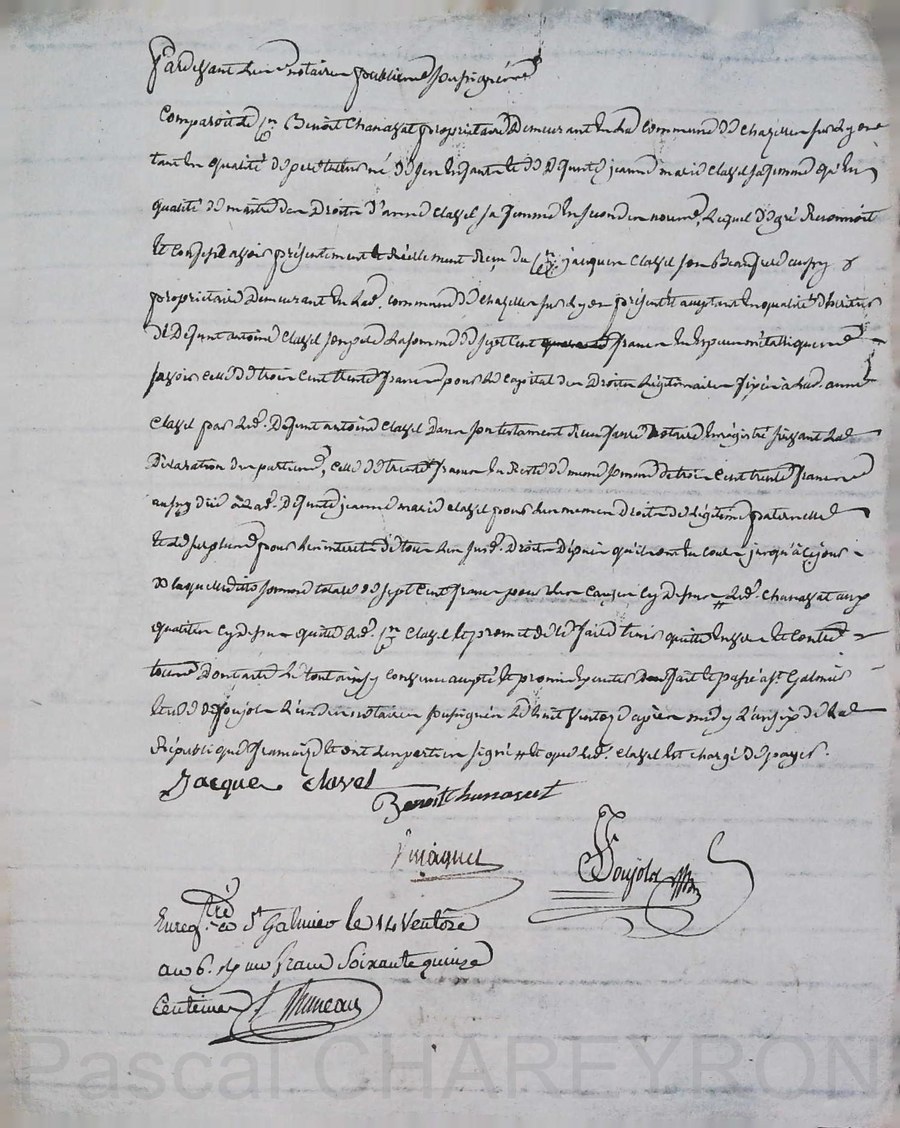 Pardevant les notaires publics soussignés
Comparoit le Cn Benoit Chanavat propriétaire demeurant en la commune de Chazelles sur Lyon
tant en qualité de père de ses enfants et de défunte jeanne marie Clavel sa femme qu'en
qualité de maitre des Droits d'anne Clavel sa femme en secondes noces, Lequel de gré Reconnoit
et confesse avoir présentement et réellement reçu du Cn jacques Clavel son Beaufrere aussy
propriétaire Demeurant en lad. commune de Chazelles sur Lyon présent et acceptant en qualité d'heritier
de Défunt antoine Clavel son pere La somme de sept cent francs en espèces métalliques
savoir celle de trois cent trente francs pour le capital des Droits Légitimaires fixés a lad. anne
Clavel par led. Defunt antoine Clavel dans son testament Reçu notaire enregistré suivant la
Déclaration des parties, celle de trente francs en Reste de meme somme de trois cent trente francs
aussy due à lad. Defunte jeanne marie Clavel pour les memes Droits de Légitime paternelle
et le surplus pour les interets de tous les susd. Droits Depuis qu'ils ont eu cours jusqu'à ce jour
De laquelle dite somme totale de sept cent francs pour les causes cy dessus # led. Chanavat aux
qualités cy dessus quitte led. Cn Clavel et promet de le faire tenir quitte envers et contre
tous Dont acte Le tout ainsy convenu accepté et promis executer fait et passé a St Galmier
etude de Soujols L'un des notaires soussignés Le huit Ventose après midy L'an six de la
République française et ont les parties signé # et que led. Clavel est chargé de payer.
Jacque Clavel
Benoit Chanavat
Soujols
Enregtré a St Galmier le 14 Ventôse
an 6. reçu un franc Soixante quinze
Centimes
Pascal CHAREYRON